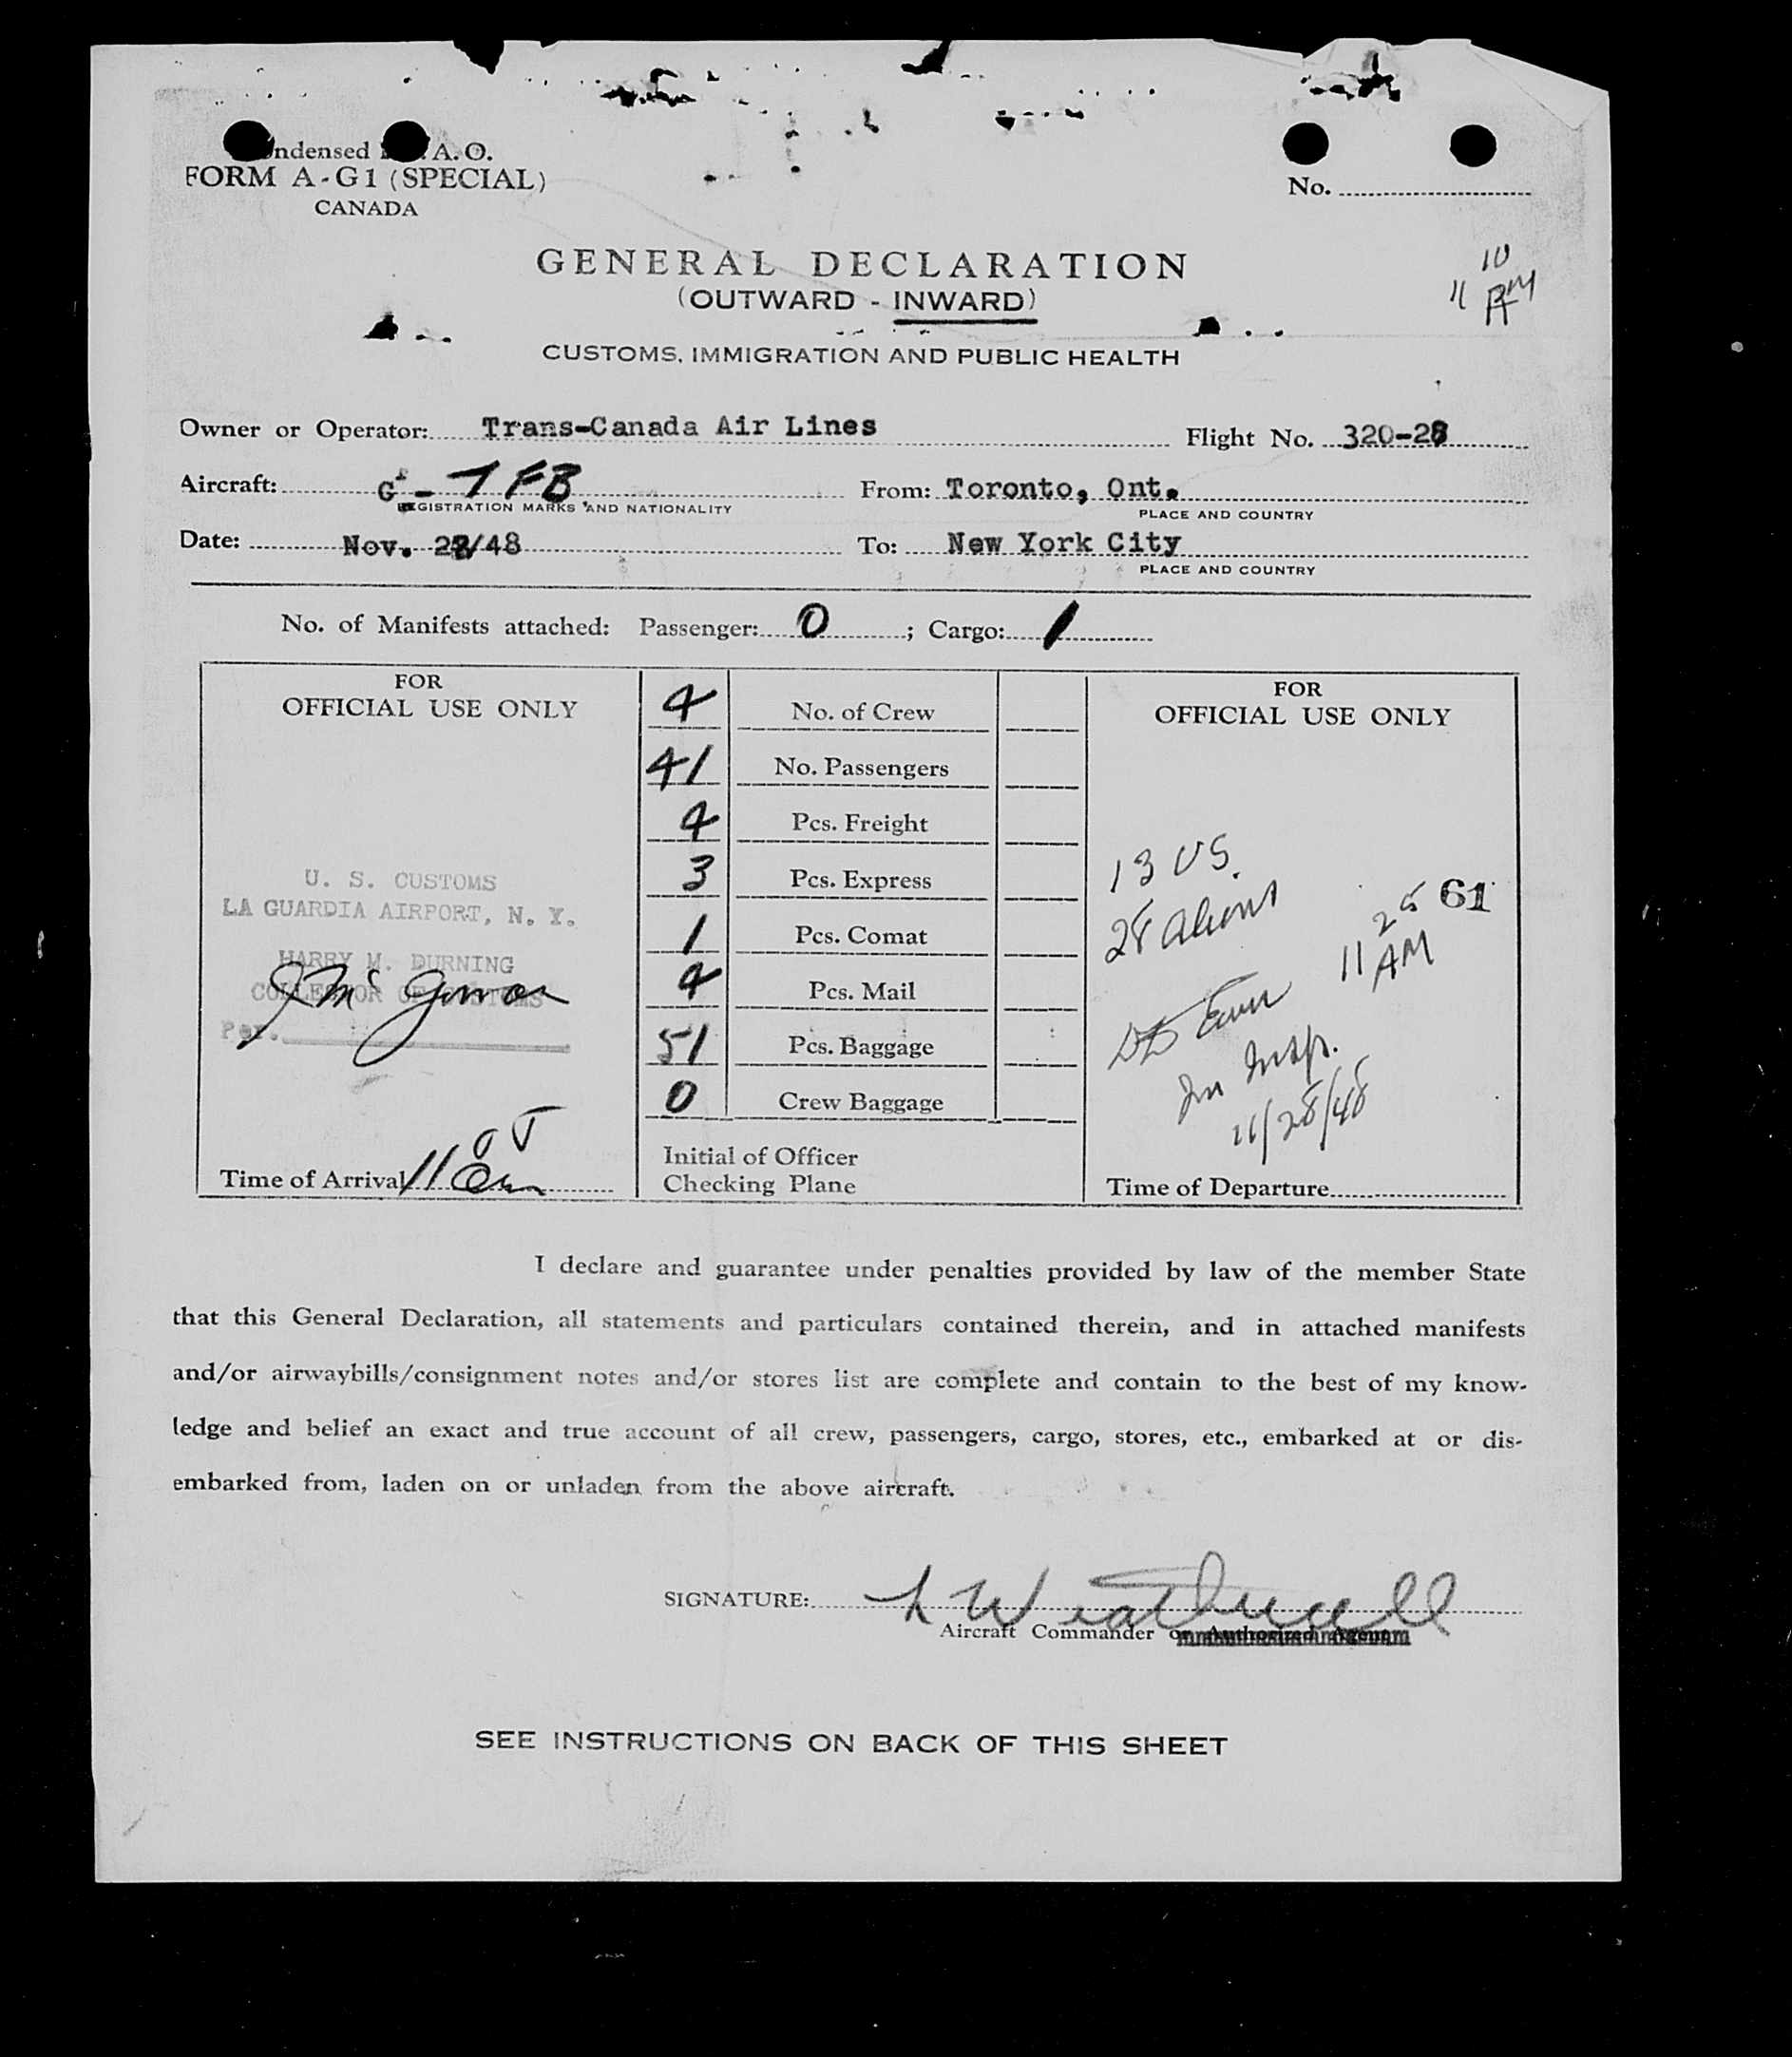 ndensed A. O.
FORM A-G1 (SPECIAL)
CANADA
No.
GENERAL DECLARATION
(OUTWARD - INWARD)
10
11
CUSTOMS, IMMIGRATION AND PUBLIC HEALTH
Owner or Operator: Trans-Canada Air Lines Flight No. 320-28
Aircraft: G - TFB From: Toronto, Ont.
REGISTRATION MARKS AND NATIONALITY PLACE AND COUNTRY
Date: Nov. 28/48 To: New York City
PLACE AND COUNTRY
No. of Manifests attached: Passenger: 0 ; Cargo: 1
FOR
OFFICIAL USE ONLY
U. S. CUSTOMS
LA GUARDIA AIRPORT, N. Y.
HARRY M. DURNING
COLLECTOR OF CUSTOMS
Per.
Time of Arrival 11
4 No. of Crew
41 No. Passengers
4 Pcs. Freight
3 Pcs. Express
1 Pcs. Comat
4 Pcs. Mail
51 Pcs. Baggage
0 Crew Baggage
Initial of Officer
Checking Plane
FOR
OFFICIAL USE ONLY
13 US.
28 aliens
61
11 25 AM
Im Insp.
11/28/48
Time of Departure
I declare and guarantee under penalties provided by law of the member State
that this General Declaration, all statements and particulars contained therein, and in attached manifests
and/or airwaybills/consignment notes and/or stores list are complete and contain to the best of my know-
ledge and belief an exact and true account of all crew, passengers, cargo, stores, etc., embarked at or dis-
embarked from, laden on or unladen from the above aircraft.
SIGNATURE:
Aircraft Commander or Authorized Agent
SEE INSTRUCTIONS ON BACK OF THIS SHEET